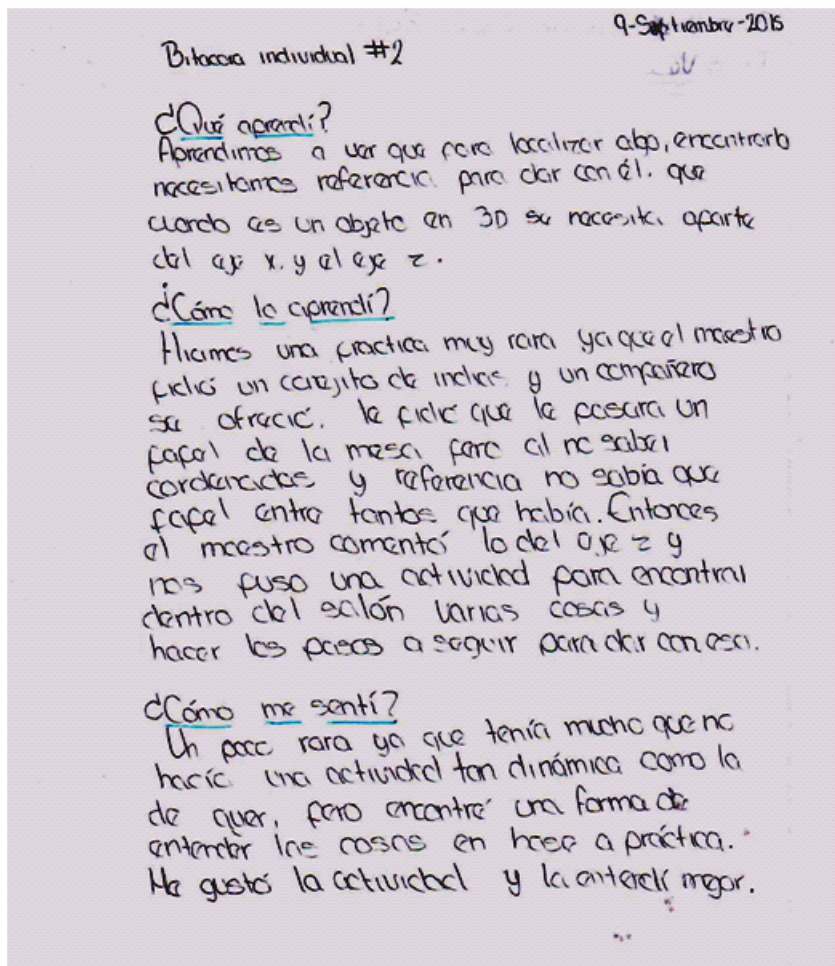 9-Septiembre-2015
Bitacora individual #2
¿Qué aprendí?
Aprendimos a ver que para localizar algo, encontrarlo
necesitamos referencia para dar con él. que
cuando es un objeto en 3D se necesita aparte
del eje x. y el eje z.
¿Cómo lo aprendí?
Hicimos una practica muy rara ya que el maestro
pidió un conejito de indias y un compañero
se ofreció. le pidió que le pasara un
papel de la mesa pero al no saber
cordenadas y referencia no sabía que
papel entre tantos que había. Entonces
el maestro comentó lo del eje z y
nos puso una actividad para encontrar
dentro del salón varias cosas y
hacer los pasos a seguir para dar con eso.
¿Cómo me sentí?
Un poco rara ya que tenía mucho que no
hacía una actividad tan dinámica como la
de ayer, pero encontré una forma de
entender las cosas en base a práctica.
Me gustó la actividad y la entendí mejor.